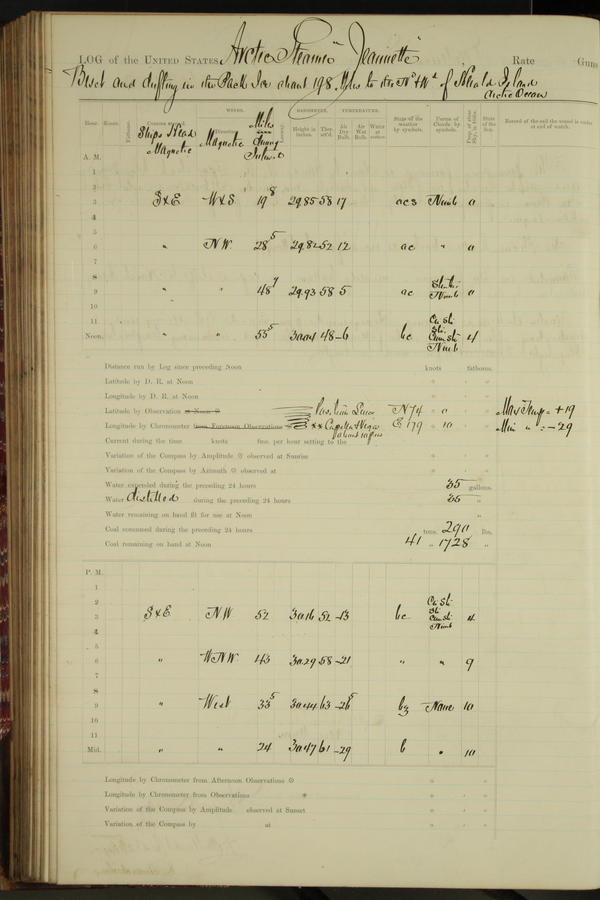 LOG of the UNITED STATES Arctic Steamer "Jeannette" Rate Guns
Beset and drifting in the Pack Ice about 198 Miles to the Nd & Wd of Herald Island
Arctic Ocean
Hour. Knots. Fathoms. Courses Ship's Head Magnetic WINDS. Magnetic Miles during Interval BAROMETER. Height in Ther. att'd. TEMPERATURE. Air Dry Bulb. Air Wet Bulb. Water at surface. State of the weather by symbols. Forms of Clouds by symbols. State of the Sea. Record of the sail the vessel is under at end of watch.
A. M.
1
2
3 S & E W & S 19 8 29.85 58 17 ocs Nimb 0
4
5
6 " N W 28 5 29.82 52 12 oc " 0
7
8
9 " " 48 7 29.93 58 5 oc Nimb 0
10
11
Noon. " " 53 5 30.04 48 -6 bc Ci St. Str. Cum Str Nimb 4
Distance run by Log since preceding Noon knots fathoms.
Latitude by D. R. at Noon
Longitude by D. R. at Noon
Latitude by Observation at Noon N 74 Max Temp = +19
Longitude by Chronometer from Forenoon Observations ** Capella & Vega E 179 10 Min " = -29
Current during the time knots fms. per hour setting to the
Variation of the Compass by Amplitude observed at Sunrise
Variation of the Compass by Azimuth observed at
Water expended during the preceding 24 hours 35 gallons.
Water distilled during the preceding 24 hours 35 "
Water remaining on hand fit for use at Noon "
Coal consumed during the preceding 24 hours tons, 290 lbs.
Coal remaining on hand at Noon 41 " 1728 "
P. M.
1
2
3 S & E N W 52 30.16 52 -13 bc Ci St. Str Cum Str Nimb 4
4
5
6 " W N W 43 30.29 58 -21 " " 9
7
8
9 " West 33 5 30.44 63 -26 5 bz None 10
10
11
Mid. " " 24 30.47 61 -29 b " 10
Longitude by Chronometer from Afternoon Observations
Longitude by Chronometer from Observations *
Variation of the Compass by Amplitude observed at Sunset
Variation of the Compass by at